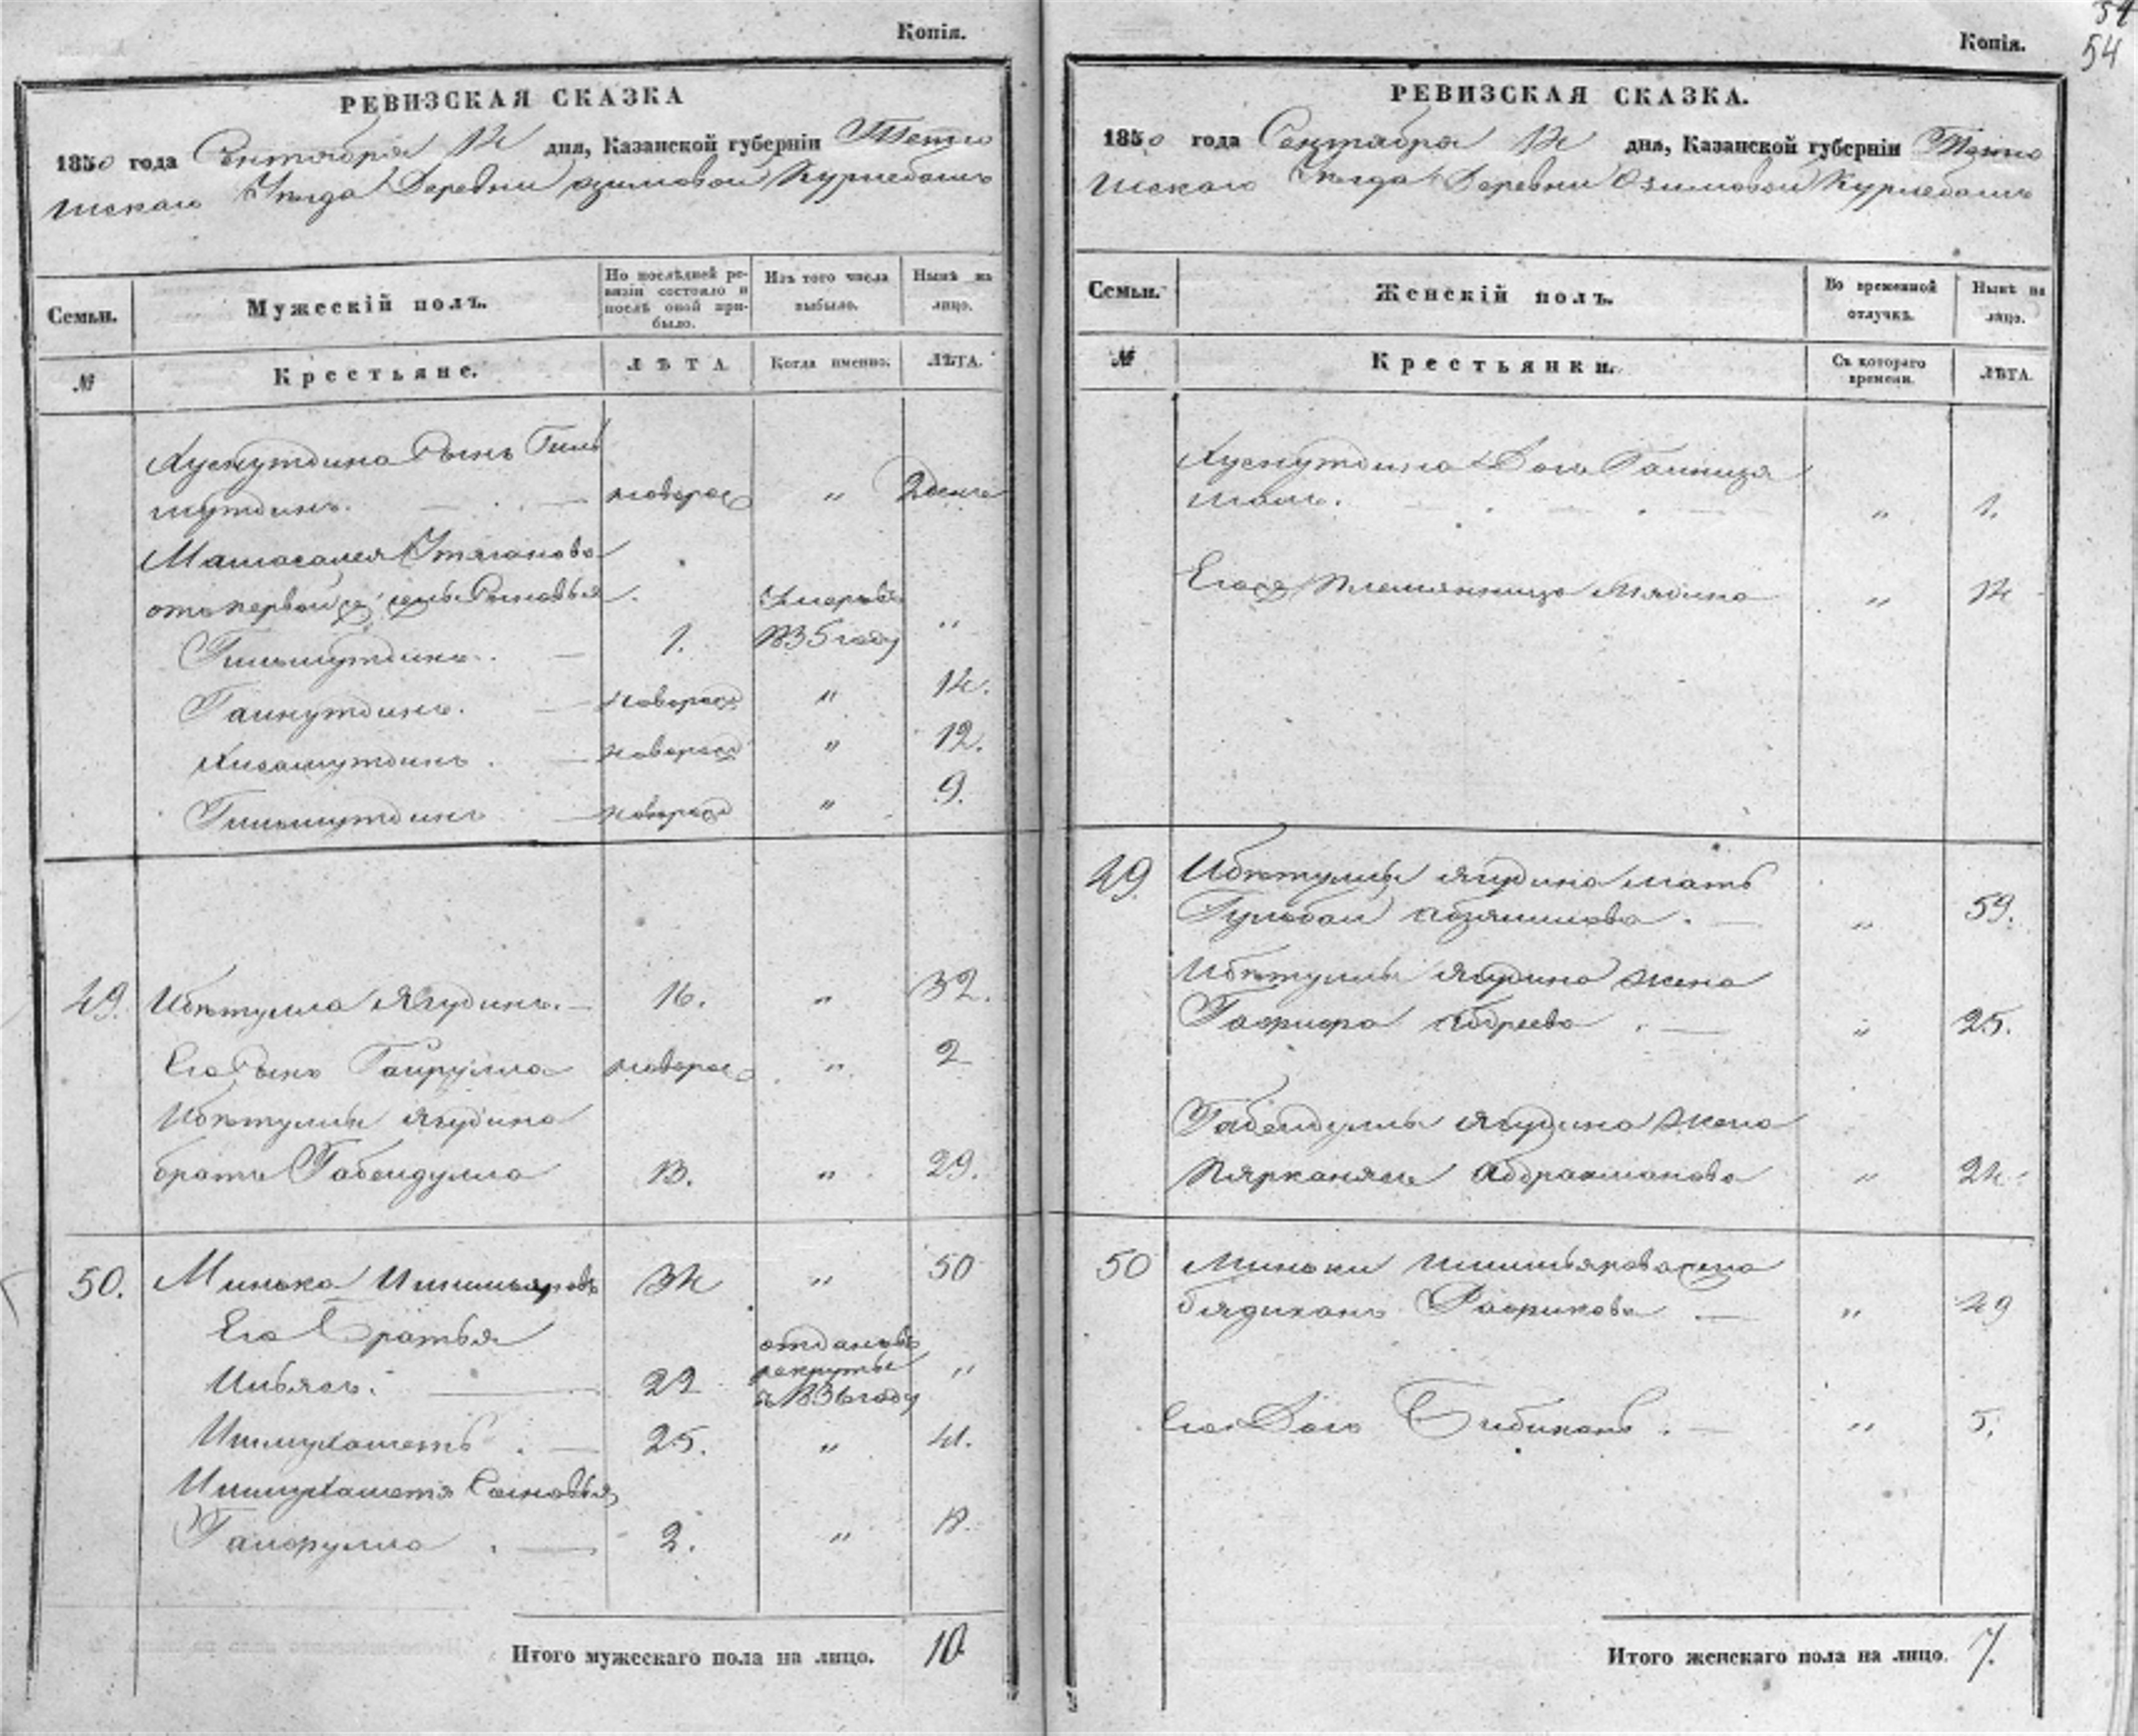 Копія.
РЕВИЗСКАЯ СКАЗКА
1850 года Сентября 14 дня, Казанской губерніи Тетю
шскаго Уезда Деревни Озимовой Курмебашъ
Семьи.
Мужескій полъ.
По послѣдней ре-
визіи состояло и
послѣ оной при-
было.
Изъ того числа
выбыло.
Нынѣ на
лицо.
№
Крестьяне.
ЛѢТА
Когда именно.
ЛѢТА.
Хуснутдина Сынъ Гиль
мутдинъ. новорож " 2 дене
от первой
Умеръ въ
Гильмутдинъ. 1. 1835 году "
Гайнутдинъ. новорож " 14.
Хисамутдинъ. новорож " 12.
Гильмутдинъ новорож " 9.
49. Ибѣтулла Ягудинъ. 16. " 32.
Его Сынъ Гайрулла новорож " 2
Ибѣтуллы Ягудина
братъ Габейдулла 13. " 29.
50. Минька Ишимьяровъ 34 " 50
Его Братья
отданъ въ
Ильясъ. 22 рекруты "
въ 1836 году
Ишмухаметъ. 25. " 41.
Ишмухаметя Сыновья
Гайфулла. 2. " 18.
Итого мужескаго пола на лицо. 10.
54
54
Копія.
РЕВИЗСКАЯ СКАЗКА.
1850 года Сентября 14 дня, Казанской губерніи Тетю
шскаго Уезда Деревни Озимовой Курмебашъ
Семьи.
Женскій полъ.
Во временной
отлучкѣ.
Нынѣ на
лицо.
№
Крестьянки.
Съ котораго
времени.
ЛѢТА.
Хуснутдина Дочь
" 1.
Его племянница " 14
49. Ибѣтуллы Ягудина мать
Гульбай " 59.
Ибѣтуллы Ягудина жена
" 25.
Габейдуллы Ягудина жена
Абдрахманова " 24.
50 Миньки Ишимьярова жена
Рафикова " 49
Его Дочь Бибикань. " 5.
Итого женскаго пола на лицо. 7.